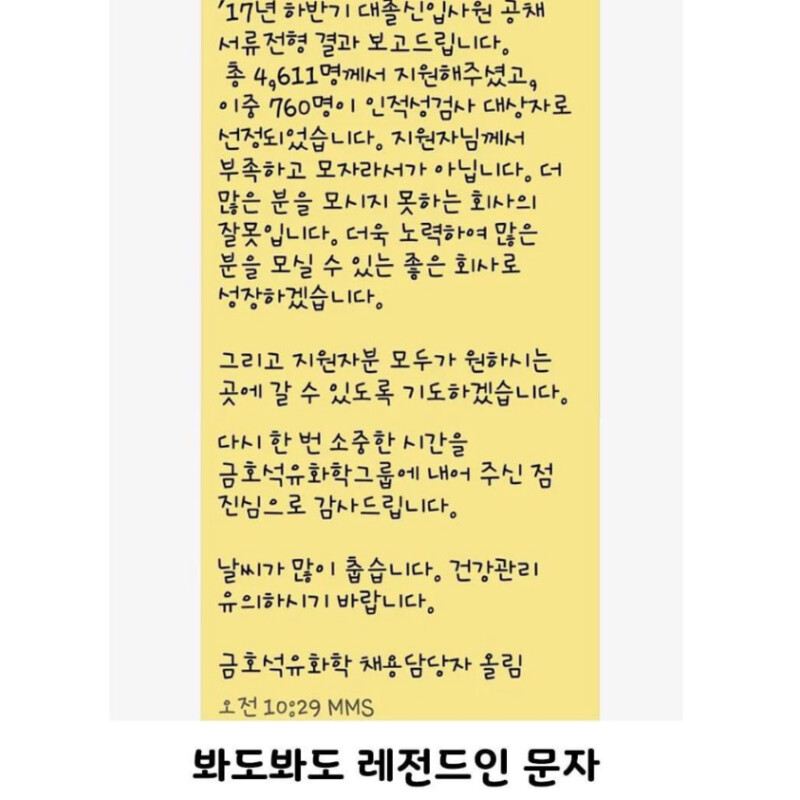 ’17년 하반기 대졸신입사원 공채
서류전형 결과 보고드립니다.
총 4,611명께서 지원해주셨고,
이중 760명이 인적성검사 대상자로
선정되었습니다. 지원자님께서
부족하고 모자라서가 아닙니다. 더
많은 분을 모시지 못하는 회사의
잘못입니다. 더욱 노력하여 많은
분을 모실 수 있는 좋은 회사로
성장하겠습니다.
그리고 지원자분 모두가 원하시는
곳에 갈 수 있도록 기도하겠습니다.
다시 한 번 소중한 시간을
금호석유화학그룹에 내어 주신 점
진심으로 감사드립니다.
날씨가 많이 춥습니다. 건강관리
유의하시기 바랍니다.
금호석유화학 채용담당자 올림
오전 10:29 MMS
봐도봐도 레전드인 문자